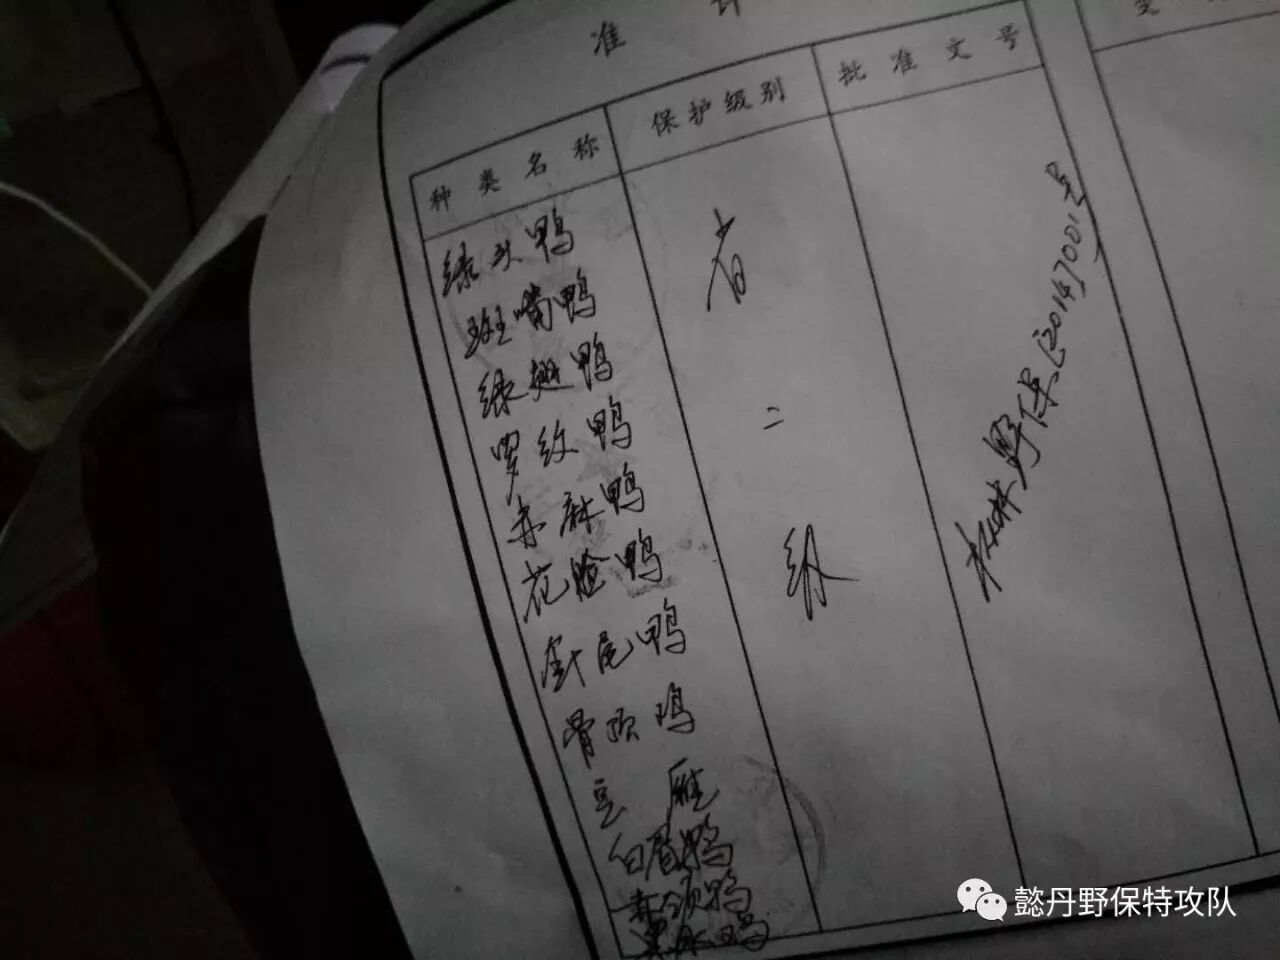 准
种类名称
保护级别
批准文号
绿头鸭
斑嘴鸭
绿翅鸭
罗纹鸭
赤麻鸭
花脸鸭
针尾鸭
骨顶鸡
豆雁
白眉鸭
赤颈鸭
黑水鸡
省
二
级
林野保[2014]7001号
懿丹野保特攻队